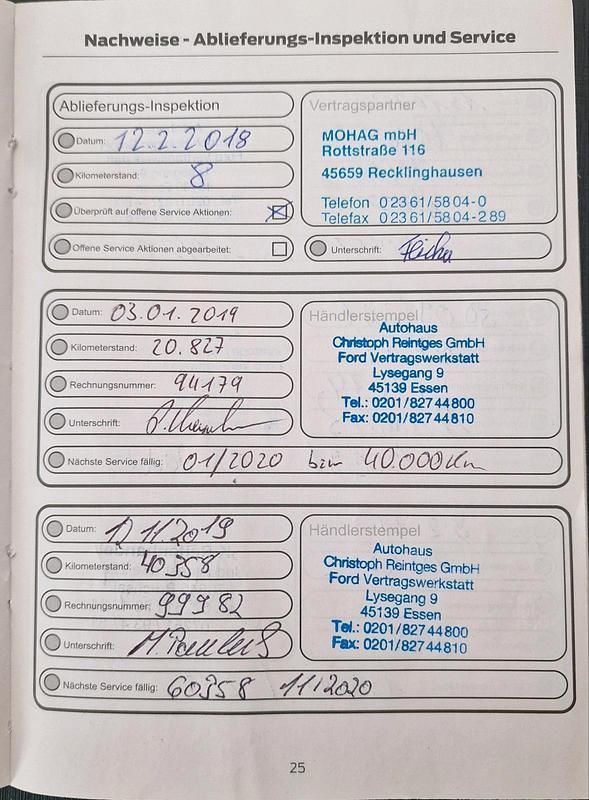 Nachweise - Ablieferungs-Inspektion und Service
Ablieferungs-Inspektion
Datum: 12.2.2018
Kilometerstand: 8
Überprüft auf offene Service Aktionen:
Offene Service Aktionen abgearbeitet:
Vertragspartner
MOHAG mbH
Rottstraße 116
45659 Recklinghausen
Telefon 0 23 61/58 04-0
Telefax 0 23 61/58 04-2 89
Unterschrift:
Datum: 03.01.2019
Kilometerstand: 20.827
Rechnungsnummer: 94179
Unterschrift:
Händlerstempel
Autohaus
Christoph Reintges GmbH
Ford Vertragswerkstatt
Lysegang 9
45139 Essen
Tel.: 0201/827 44 800
Fax: 0201/827 44 810
Nächste Service fällig: 01/2020 bzw 40.000 Km
Datum: 12 11 2019
Kilometerstand: 40358
Rechnungsnummer: 99982
Unterschrift:
Händlerstempel
Autohaus
Christoph Reintges GmbH
Ford Vertragswerkstatt
Lysegang 9
45139 Essen
Tel.: 0201/827 44 800
Fax: 0201/827 44 810
Nächste Service fällig: 60358 11/2020
25